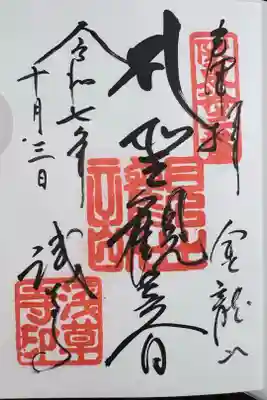 奉拝
金龍山
聖観世音
浅草寺
令和七年
十月三日
浅草
寺印